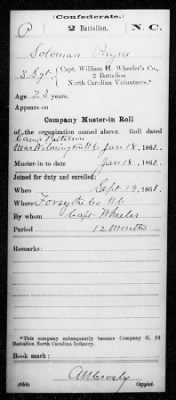 (Confederate.)
P 2 Battalion. N. C.
Soloman Payne
3 Sgt., Capt. William H. Wheeler's Co.,
2 Battalion
North Carolina Volunteers.*
Age 23 years.
Appears on
Company Muster-in Roll
of the organization named above. Roll dated
Camp
Near Wilmington N.C. Jan 18, 1862.
Muster-in to date Jan 18, 1862.
Joined for duty and enrolled:
When Sept. 19, 1861.
Where Forsythe Co N.C.
By whom Capt Wheeler
Period 12 Months
Remarks:
*This company subsequently became Company G, 2d
Battalion North Carolina Infantry.
Book mark:
(654) Copyist.